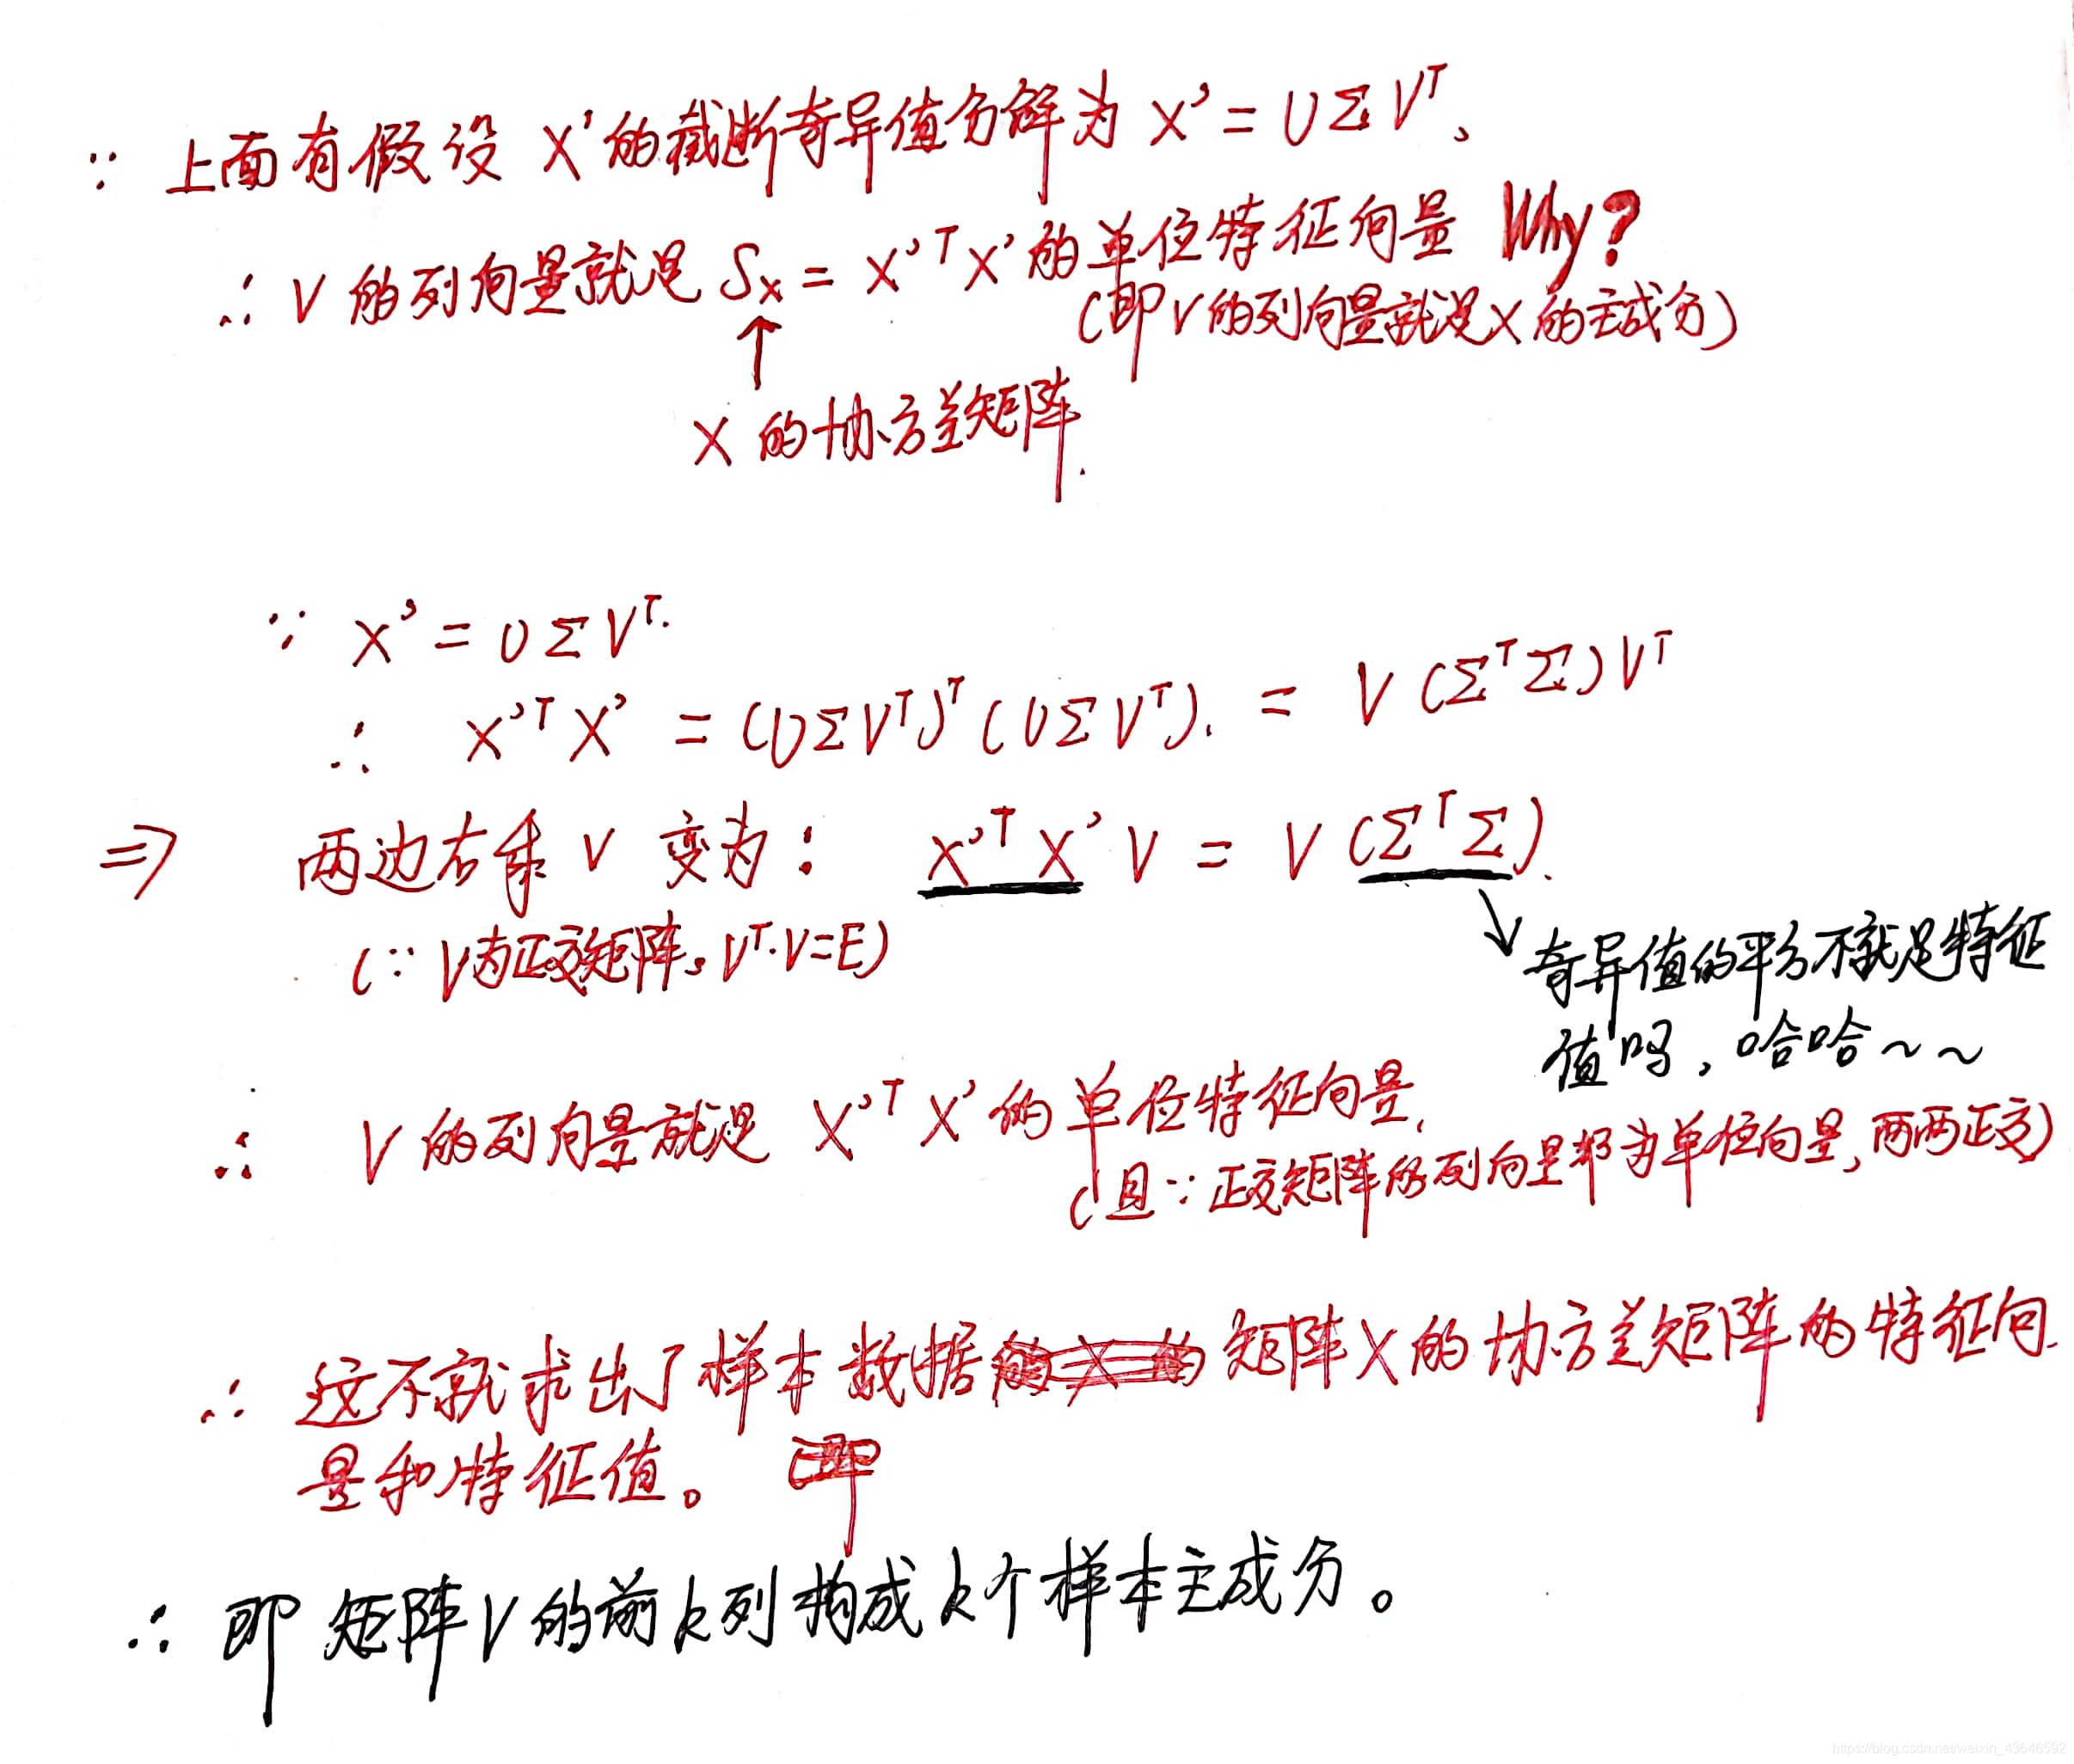 ∵ 上面有假设 X'的截断奇异值分解为 X' = UΣV^T、
∴ V 的列向量就是 S_x = X'^T X' 的单位特征向量 Why?
(即V的列向量就是X的主成分)
↑
X 的协方差矩阵.
∵ X' = UΣV^T.
∴ X'^T X' = (UΣV^T)^T (UΣV^T). = V (Σ^TΣ)V^T
⇒ 两边右乘 V 变为: X'^T X' V = V (Σ^TΣ).
(∵ V为正交矩阵。V^T·V=E)
↘ 奇异值的平方不就是特征
值吗,哈哈~~
∴ V 的列向量就是 X'^T X' 的单位特征向量,
(且∵正交矩阵的列向量都为单位向量,两两正交)
∴ 这不就求出了样本数据矩阵X的协方差矩阵的特征向
量和特征值。
∴ 即矩阵V的前k列构成k个样本主成分。
https://blog.csdn.net/weixin_43646592